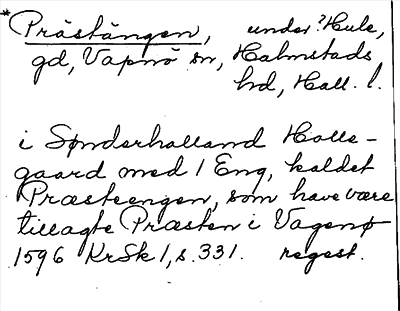 * Prästängen, under ? Hule,
gd, Vapnö sn, Halmstads
hd, Hall. l.
i Sønderhalland Halle-
gaard med 1 Eng, kaldet
Præsteengen, som have være
tillagte Præsten i Vagenø
1596 KrSk 1, s. 331. regest.